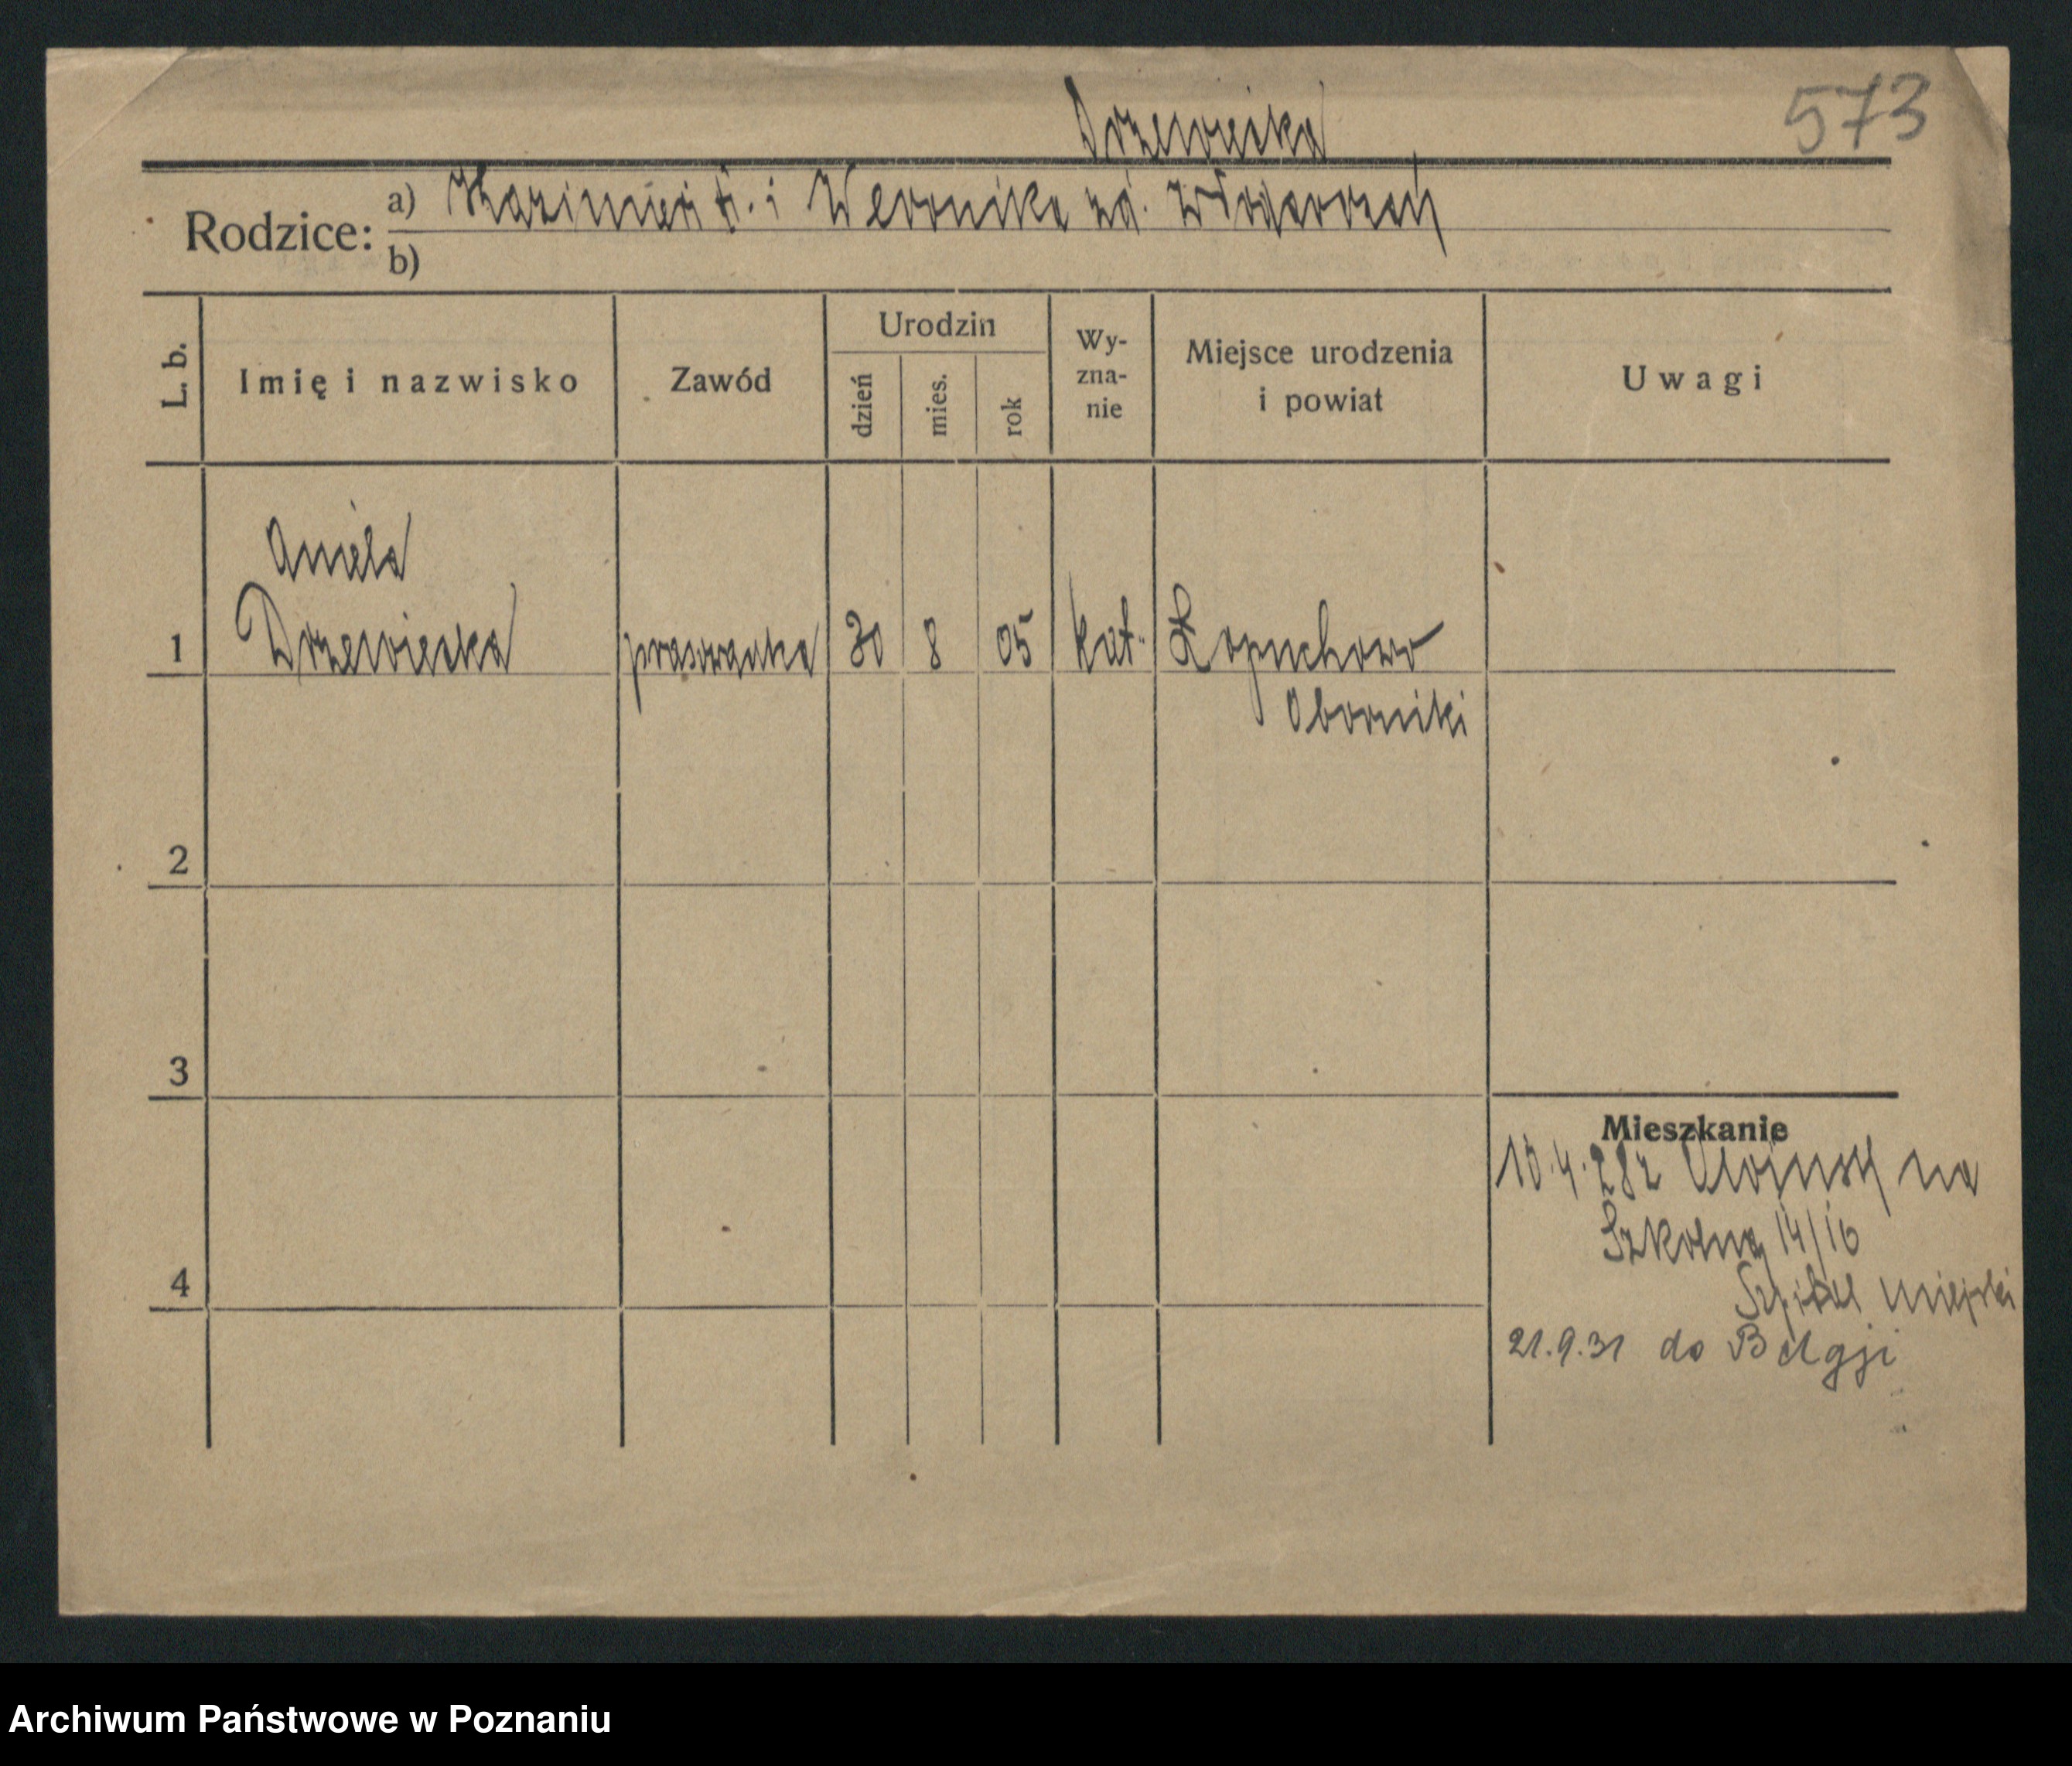 573
Drzewiecka
Rodzice: a) Kazimierz i Weronika
b)
L. b. Imię i nazwisko Zawód Urodzin dzień mies. rok Wyznanie Miejsce urodzenia i powiat Uwagi
Aniela
1 Drzewiecka prasowaczka 30 8 05 kat. Łopuchowo
Oborniki
2
3
Mieszkanie
10.4.28 z na
Szkolną 14/16
4 Szpital Miejski
21.9.31 do Belgji
Archiwum Państwowe w Poznaniu